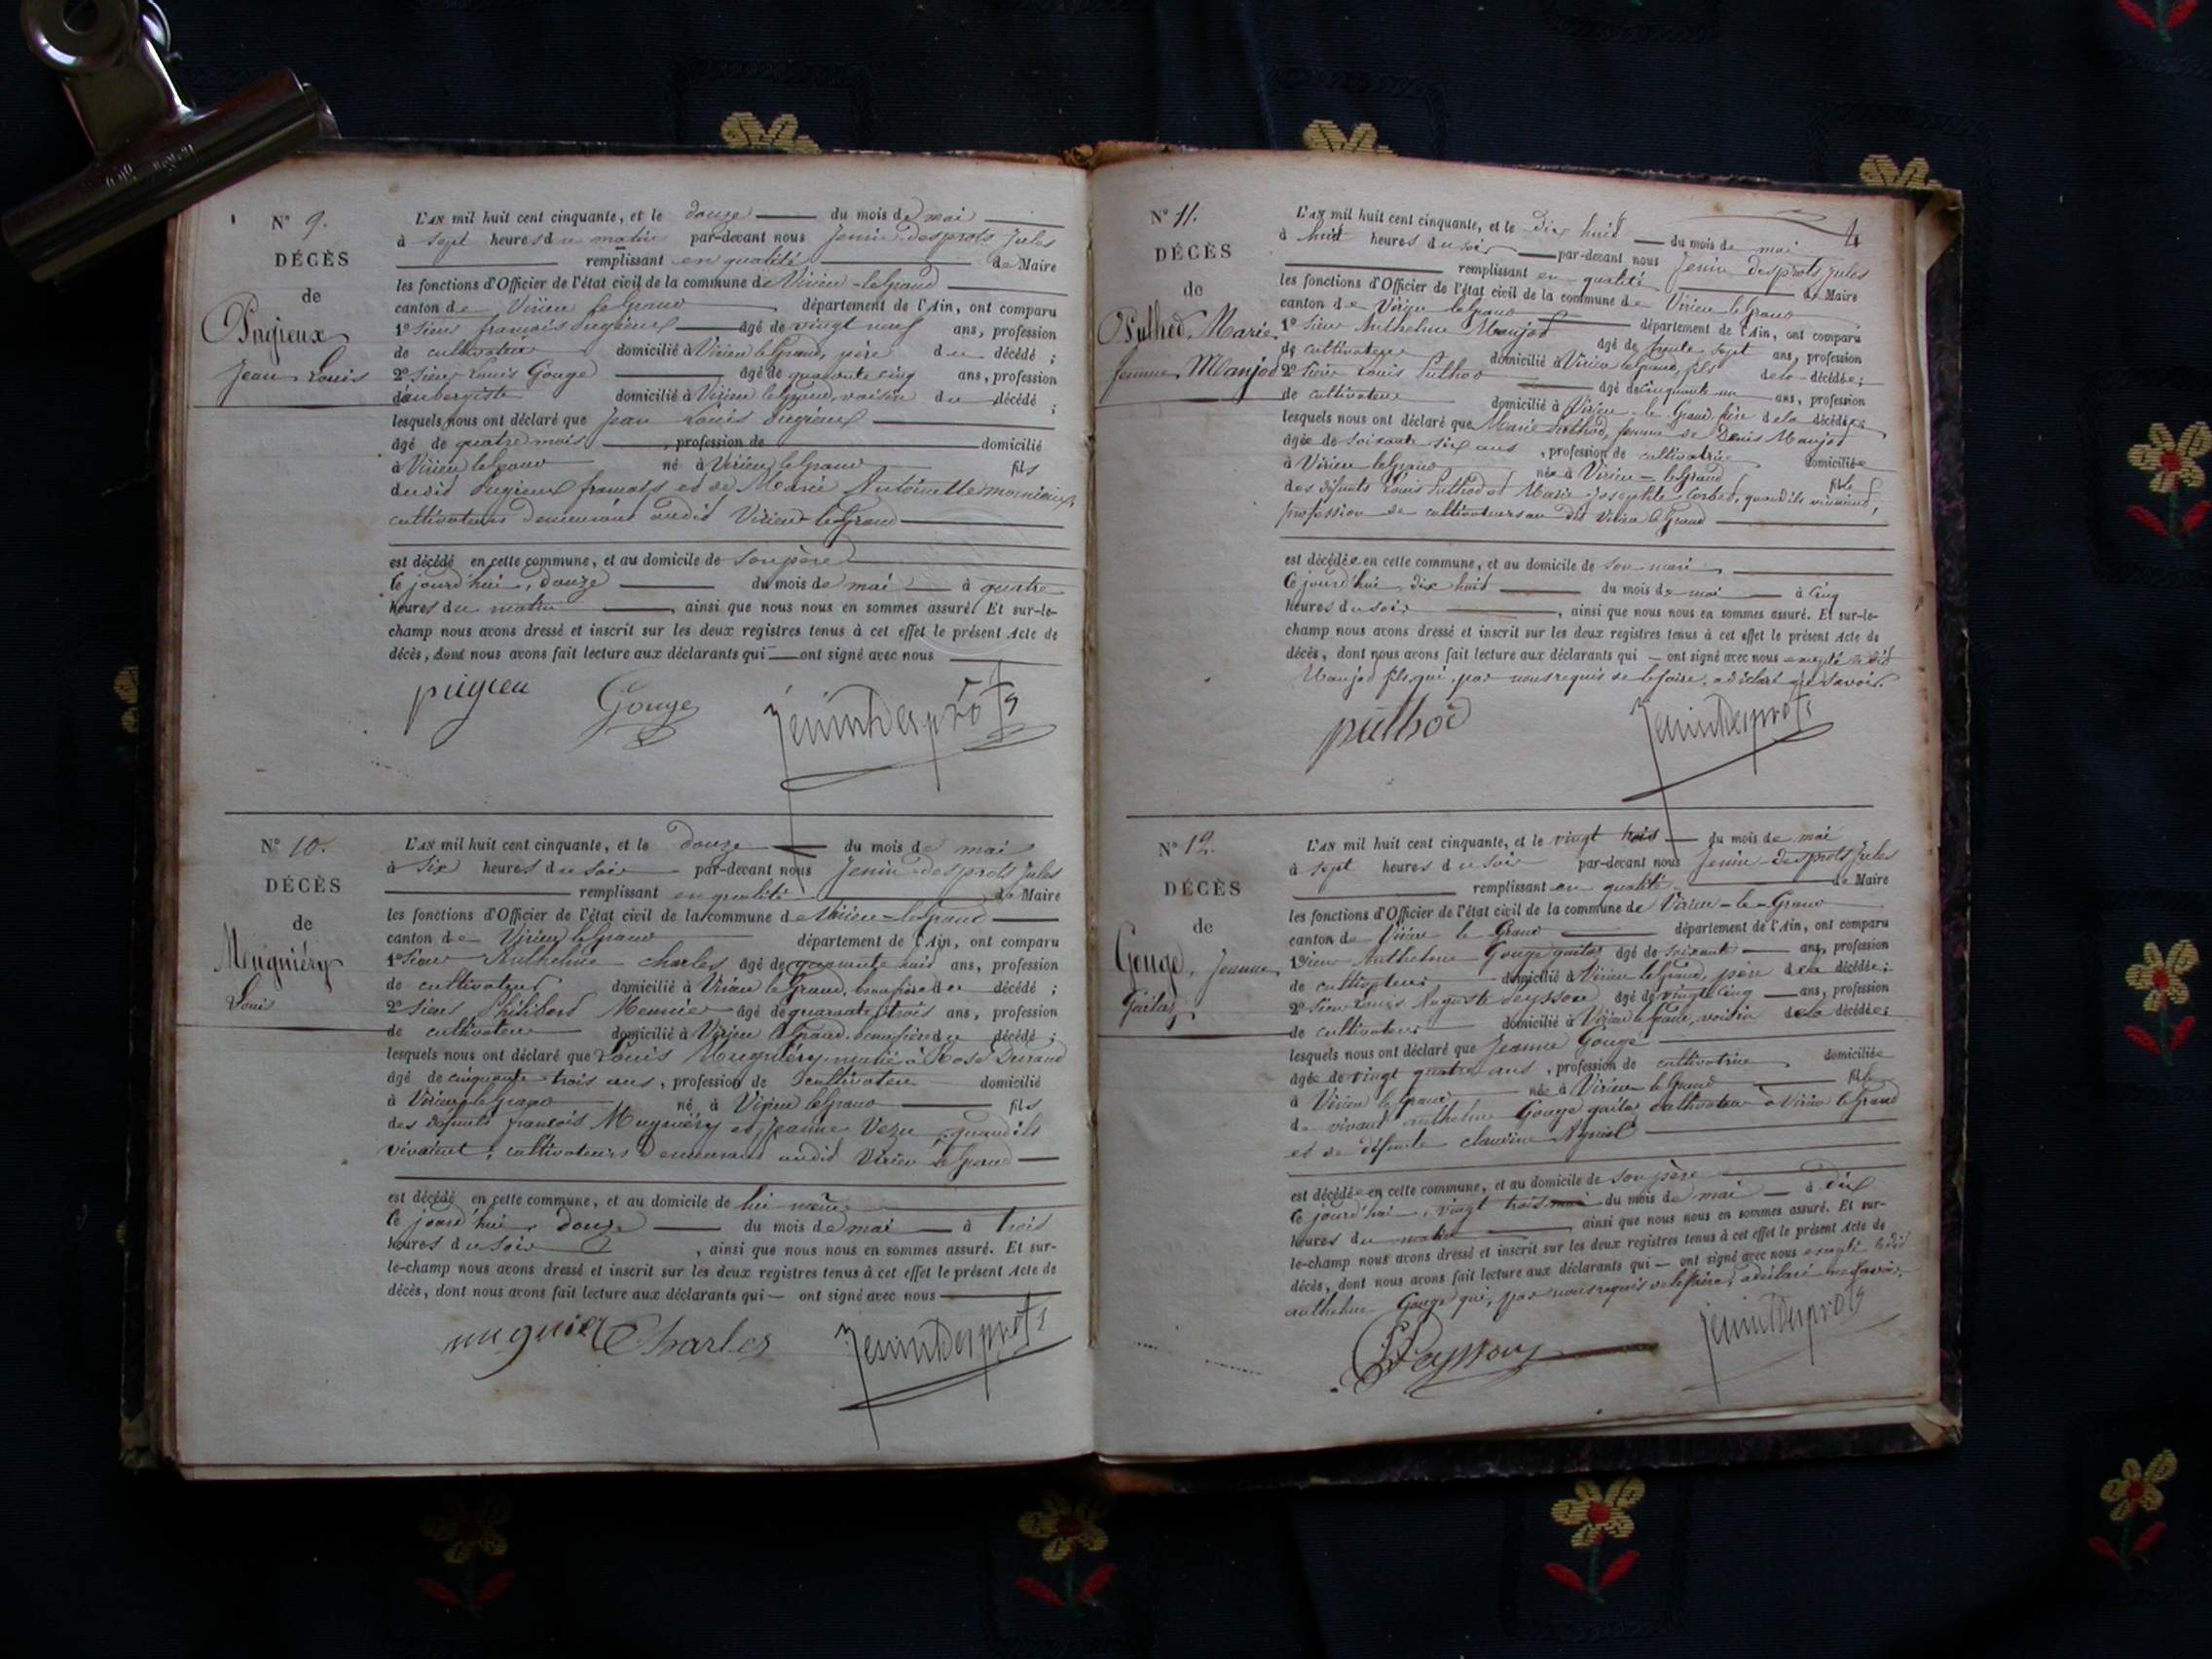 N° 9.
DÉCÈS
de
Pugieux
Jean Louis
L'AN mil huit cent cinquante, et le douze du mois de mai
à sept heures du matin par-devant nous Jenin desprots Jules
remplissant en qualité de Maire
les fonctions d'Officier de l'état civil de la commune de Virieu-le Grand
canton de Virieu le Grand département de l'Ain, ont comparu
1° Sieur françois Pugieux âgé de vingt neuf ans, profession
de cultivateur domicilié à Virieu le Grand, père du décédé;
2° Sieur Louis Gouge âgé de quarante cinq ans, profession
d'aubergiste domicilié à Virieu le Grand, voisin du décédé;
lesquels nous ont déclaré que Jean Louis Pugieux
âgé de quatre mois, profession de domicilié
à Virieu le Grand né à Virieu le Grand fils
dudit Pugieux françois et de Marie Antoinette
cultivateurs demeurant audit Virieu-le Grand
est décédé en cette commune, et au domicile de son père
Ce jourd'hui, douze du mois de mai à quatre
heures du matin, ainsi que nous nous en sommes assuré. Et sur-le-
champ nous avons dressé et inscrit sur les deux registres tenus à cet effet le présent Acte de
décès, dont nous avons fait lecture aux déclarants qui ont signé avec nous
pugieu Gouge JeninDesprots
N° 10.
DÉCÈS
de
Mugniéry
Louis
L'AN mil huit cent cinquante, et le douze du mois de mai
à six heures du soir par-devant nous Jenin desprots Jules
remplissant en qualité de Maire
les fonctions d'Officier de l'état civil de la commune de Virieu-le Grand
canton de Virieu le Grand département de l'Ain, ont comparu
1° Sieur Anthelme Charles âgé de quarante huit ans, profession
de cultivateur domicilié à Virieu le Grand, beau frère du décédé;
2° Sieur Philibert âgé de quarante trois ans, profession
de cultivateur domicilié à Virieu le Grand, beau frère du décédé;
lesquels nous ont déclaré que Louis Mugniéry, marié à Rose Durand
âgé de cinquante trois ans, profession de cultivateur domicilié
à Virieu le Grand né à Virieu le Grand fils
des défunts françois Mugniéry et Jeanne Vezu, quand ils
vivaient, cultivateurs demeurant audit Virieu le Grand
est décédé en cette commune, et au domicile de lui même
Ce jourd'hui, douze du mois de mai à trois
heures du soir, ainsi que nous nous en sommes assuré. Et sur-
le-champ nous avons dressé et inscrit sur les deux registres tenus à cet effet le présent Acte de
décès, dont nous avons fait lecture aux déclarants qui ont signé avec nous
Charles JeninDesprots
4
N° 11.
DÉCÈS
de
Puthod, Marie
femme Manjod
L'AN mil huit cent cinquante, et le dix huit du mois de mai
à huit heures du soir par-devant nous Jenin desprots Jules
remplissant en qualité de Maire
les fonctions d'Officier de l'état civil de la commune de Virieu le Grand
canton de Virieu le Grand département de l'Ain, ont comparu
1° Sieur Anthelme Manjod âgé de trente sept ans, profession
de cultivateur domicilié à Virieu le Grand, fils de la décédée;
2° Sieur Louis Puthod âgé de cinquante un ans, profession
de cultivateur domicilié à Virieu-le-Grand, frère de la décédée;
lesquels nous ont déclaré que Marie Puthod, femme de Denis Manjod
âgée de soixante six ans, profession de cultivatrice domiciliée
à Virieu le Grand née à Virieu-le Grand fille
des défunts Louis Puthod et Marie Josephte Corbet, quand ils vivaient,
profession de cultivateurs au dit Virieu le Grand
est décédée en cette commune, et au domicile de son mari
Ce jourd'hui, dix huit du mois de mai à cinq
heures du soir, ainsi que nous nous en sommes assuré. Et sur-le-
champ nous avons dressé et inscrit sur les deux registres tenus à cet effet le présent Acte de
décès, dont nous avons fait lecture aux déclarants qui ont signé avec nous excepté ledit
Manjod fils, qui, par nous requis de le faire, a déclaré ne savoir.
puthod JeninDesprots
N° 12.
DÉCÈS
de
Gouge, Jeanne
Gaitaz
L'AN mil huit cent cinquante, et le vingt trois du mois de mai
à sept heures du soir par-devant nous Jenin desprots Jules
remplissant en qualité de Maire
les fonctions d'Officier de l'état civil de la commune de Virieu-le-Grand
canton de Virieu le Grand département de l'Ain, ont comparu
1° Sieur Anthelme Gouge gaitaz âgé de soixante ans, profession
de cultivateur domicilié à Virieu le Grand, père de la décédée;
2° Sieur Louis Auguste Peysson âgé de vingt cinq ans, profession
de cultivateur domicilié à Virieu le Grand, voisin de la décédée;
lesquels nous ont déclaré que Jeanne Gouge
âgée de vingt quatre ans, profession de cultivatrice domiciliée
à Virieu le Grand née à Virieu le Grand fille
de vivant anthelme Gouge gaitaz cultivateur à Virieu le Grand
et de défunte claudine
est décédée en cette commune, et au domicile de son père
Ce jourd'hui, vingt trois mai du mois de mai à dix
heures du matin ainsi que nous nous en sommes assuré. Et sur-
le-champ nous avons dressé et inscrit sur les deux registres tenus à cet effet le présent Acte de
décès, dont nous avons fait lecture aux déclarants qui ont signé avec nous excepté ledit
anthelme Gouge qui, par nous requis de le faire, a déclaré ne savoir.
Peysson JeninDesprots